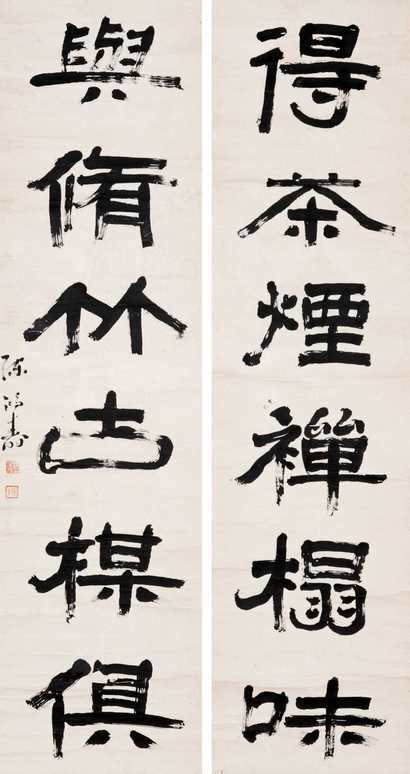 得茶煙禪榻味
與脩竹古楳俱
陳鴻壽